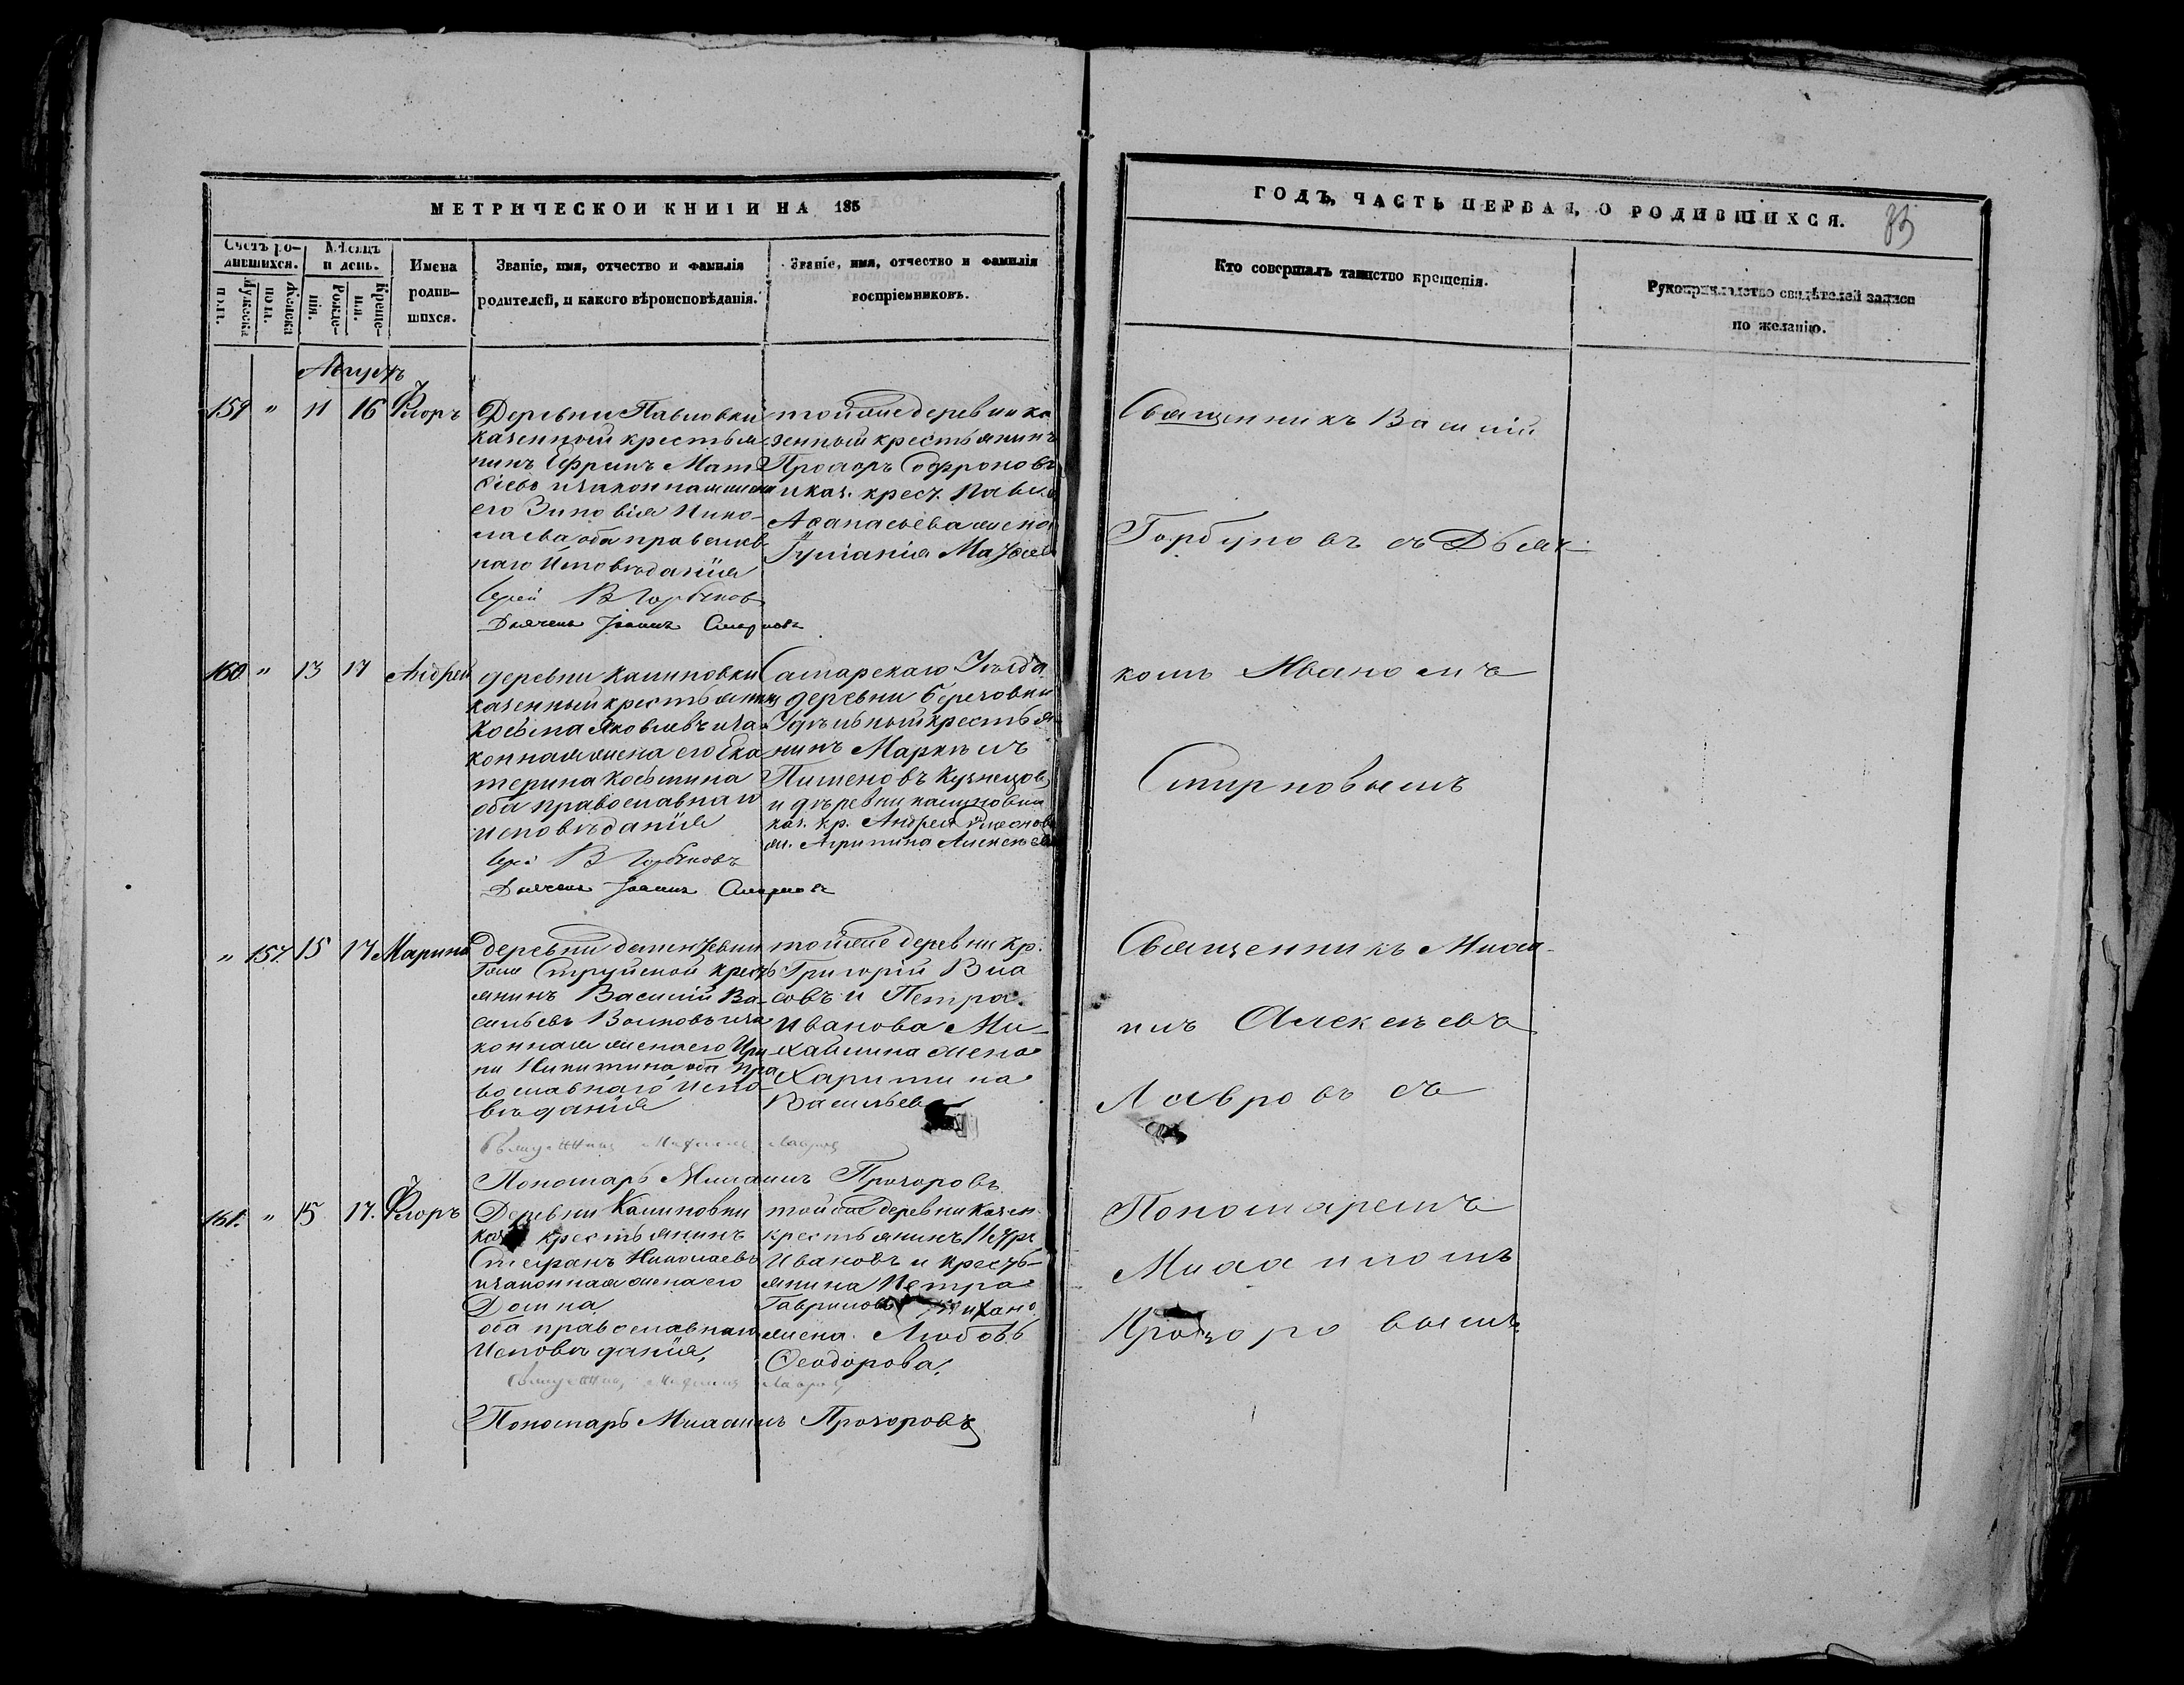 МЕТРИЧЕСКОЙ КНИГИ НА 185
Счетъ ро-
дившихся.
Мѣсяцъ
и день.
Мужеска
пола.
Женска
пола.
Рожде-
нія.
Креще-
нія.
Имена
родив-
шихся.
Званіе, имя, отчество и фамилія
родителей, и какого вѣроисповѣданія.
Званіе, имя, отчество и фамилія
воспріемниковъ.
Августъ
159 " 11 16 Флоръ
Деревни Павловки
казенный крестья
нинъ Ефримъ Мат
ѳіевъ и законная жена
его Зиновія Нико-
лаева оба православ
наго Исповѣданія
Іерей В Горбуновъ
Дьячекъ Іоаннъ Смирновъ
тойже деревни ка
зенный крестьянинъ
Прохоръ Софроновъ
и каз. крест. Павла
Аѳанасьева жена
Іуліанія
160 " 13 17 Андрей
деревни Калиновки
казенный крестьянинъ
Косьма Яковлевъ и за
конная жена его Ека
терина Косьмина
оба православнаго
исповѣданія
Іерей В Горбуновъ
Дьячекъ Іоаннъ Смирновъ
Самарскаго Уѣзда
деревни Березовки
Удѣльный крестья
нинъ Маркелъ
Пименовъ Кузнецовъ
и дѣревни калиновки
каз. кр. Андрея
ж. Агрипина Алексѣева
" 157. 15 17 Марина
деревни
Струйской кресть
янинъ Василій Ва-
сильевъ Волковъ и за
конная жена его Ири
на Никитина, оба пра
вославнаго испо-
вѣданія
Священникъ Михаилъ Лавровъ
Пономарь Михаилъ Прохоровъ
тойже деревни кр.
Григорій Вла
совъ и Петра
Иванова Ми-
хайлина жена
Харитина
Васильева
161. " 15 17. Флоръ
Деревни Калиновки
каз. крестьянинъ
Стефанъ Николаевъ
и законная жена его
Домна
оба православнаго
Исповѣданія,
Священникъ Михаилъ Лавровъ
Пономарь Михаилъ Прохоровъ
тойже деревни Казен
крестьянинъ Петръ
Ивановъ и кресть-
янина Петра
Гаврилова
жена Любовь
Ѳеодорова,
ГОДЪ, ЧАСТЬ ПЕРВАЯ, О РОДИВШИХСЯ.
83
Кто совершалъ таинство крещенія.
Рукоприкладство свидѣтелей записи
по желанію.
Священникъ Василій
Горбуновъ съ Дьяч-
комъ Иваномъ
Смирновымъ
Священникъ Миха-
илъ Алексѣевъ
Лавровъ съ
Пономаремъ
Михаиломъ
Прохоровымъ